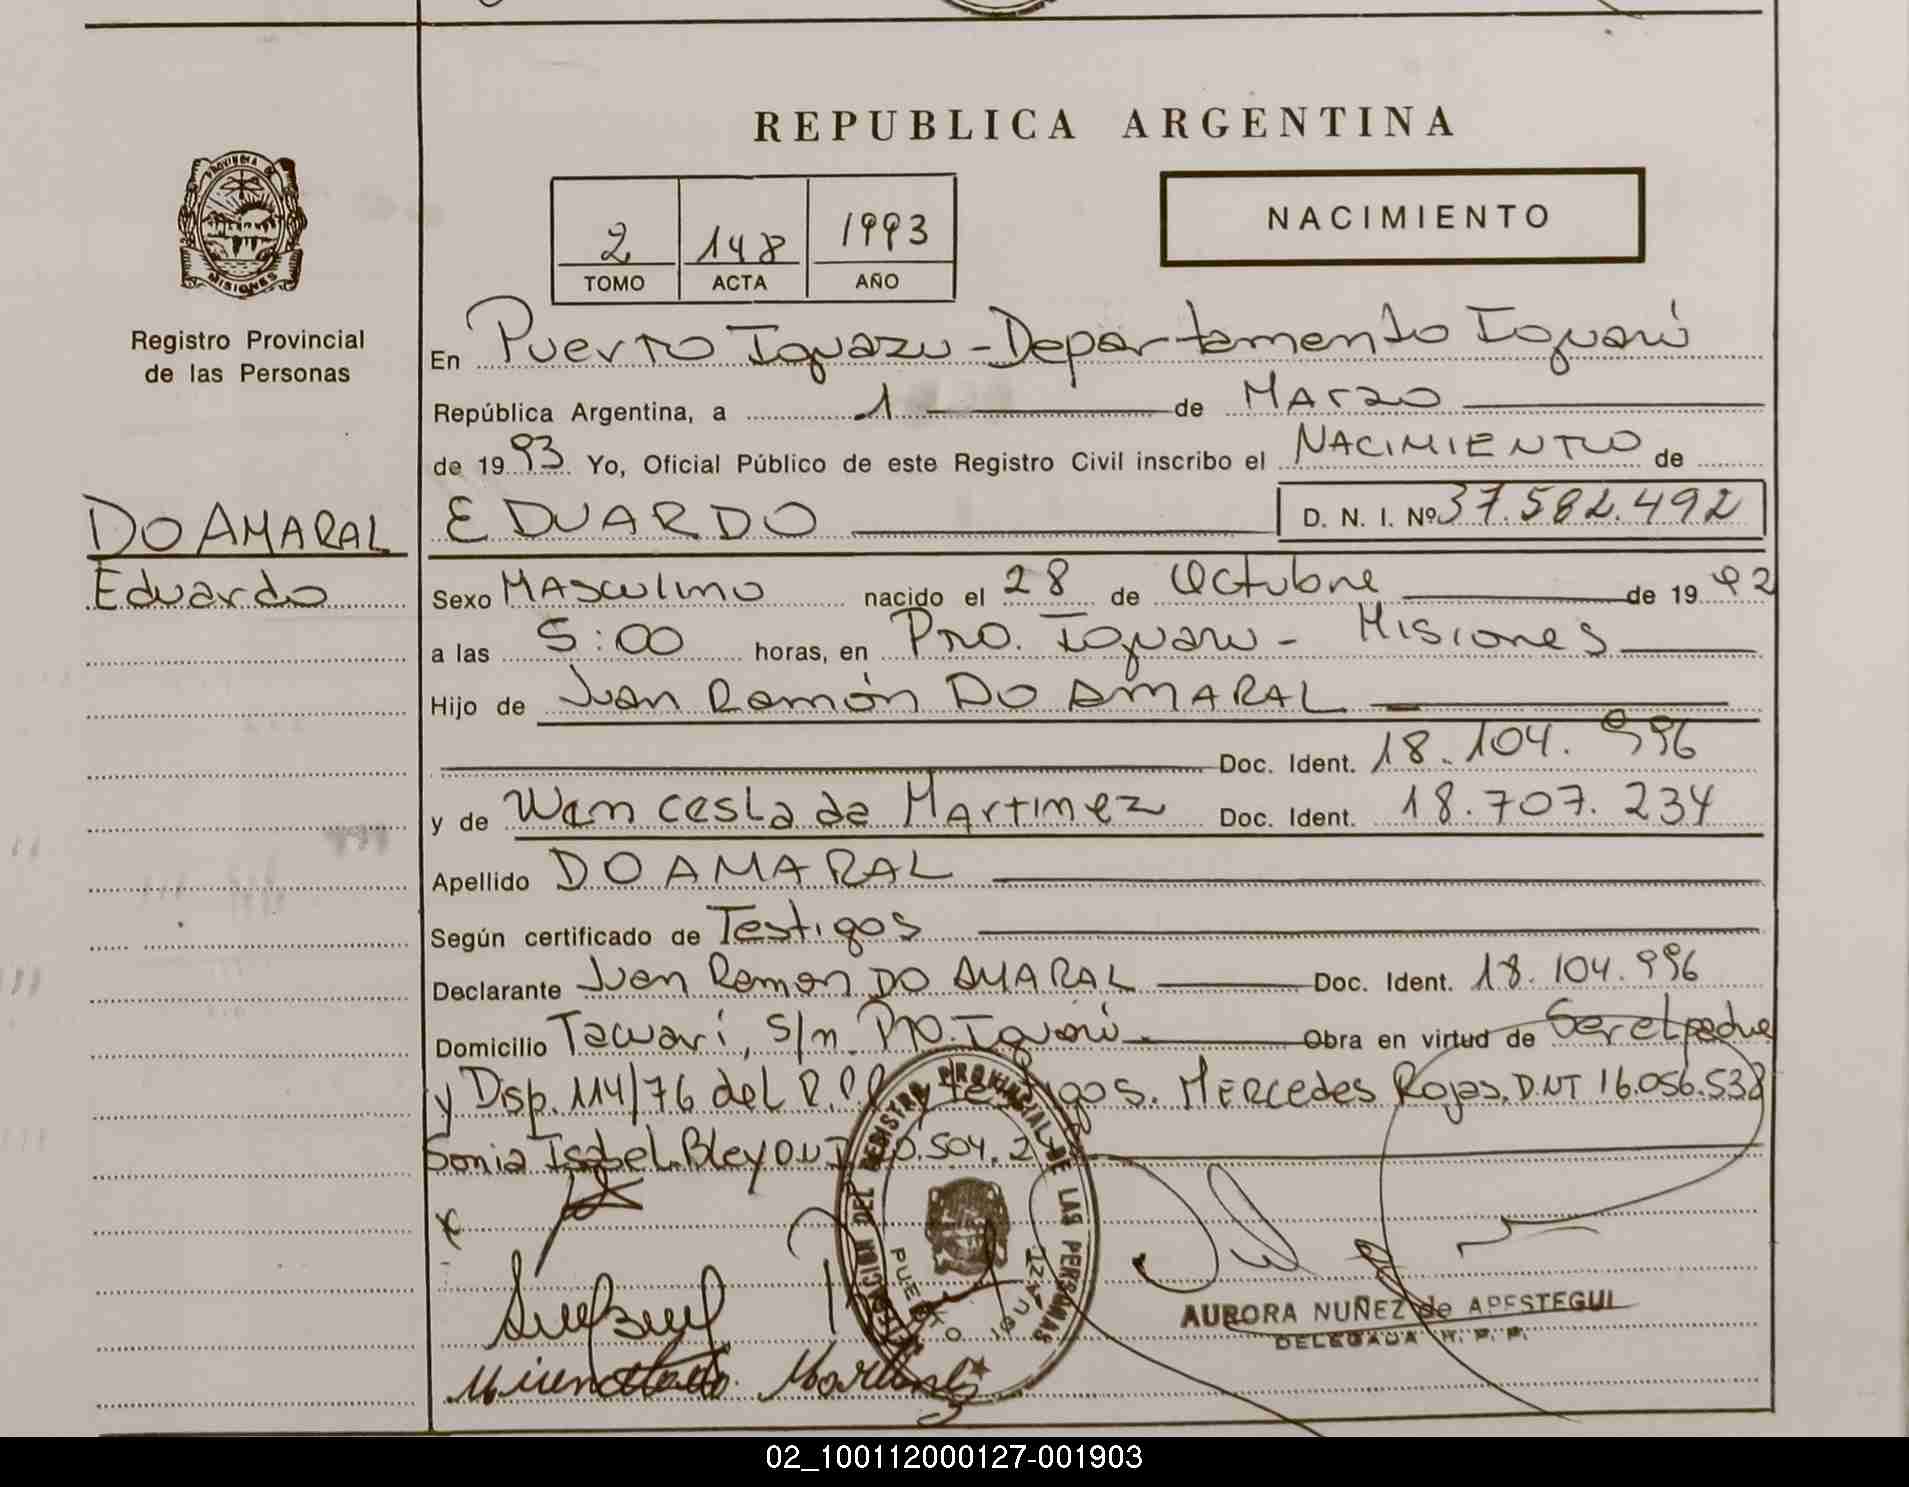 REPUBLICA ARGENTINA
PROVINCIA DE
MISIONES
Registro Provincial
de las Personas
NACIMIENTO
2 148 1993
TOMO ACTA AÑO
En Puerto Iguazu - Departamento Iguazú
República Argentina, a 1 de Marzo
de 1993 Yo, Oficial Público de este Registro Civil inscribo el NACIMIENTO de
DO AMARAL
Eduardo
EDUARDO D. N. I. Nº 37.582.492
Sexo Masculino nacido el 28 de Octubre de 1992
a las 5:00 horas, en Pto. Iguazu - Misiones
Hijo de Juan Ramón DO AMARAL
Doc. Ident. 18.104.996
y de Wenceslada Martinez Doc. Ident. 18.707.234
Apellido DO AMARAL
Según certificado de Testigos
Declarante Juan Ramon DO AMARAL Doc. Ident. 18.104.996
Domicilio Tacuari, s/n. Pto. Iguazú Obra en virtud de Ser el padre
y Disp. 114/76 del MERCEDES Rojas. DNI 16.056.538
Sonia Isabel Bley D.N.I .504.2
DELEGACION DEL REGISTRO PROVINCIAL DE LAS PERSONAS
PUERTO IGUAZU
AURORA NUÑEZ de APESTEGUI
DELEGADA R. P. P.
02_100112000127-001903